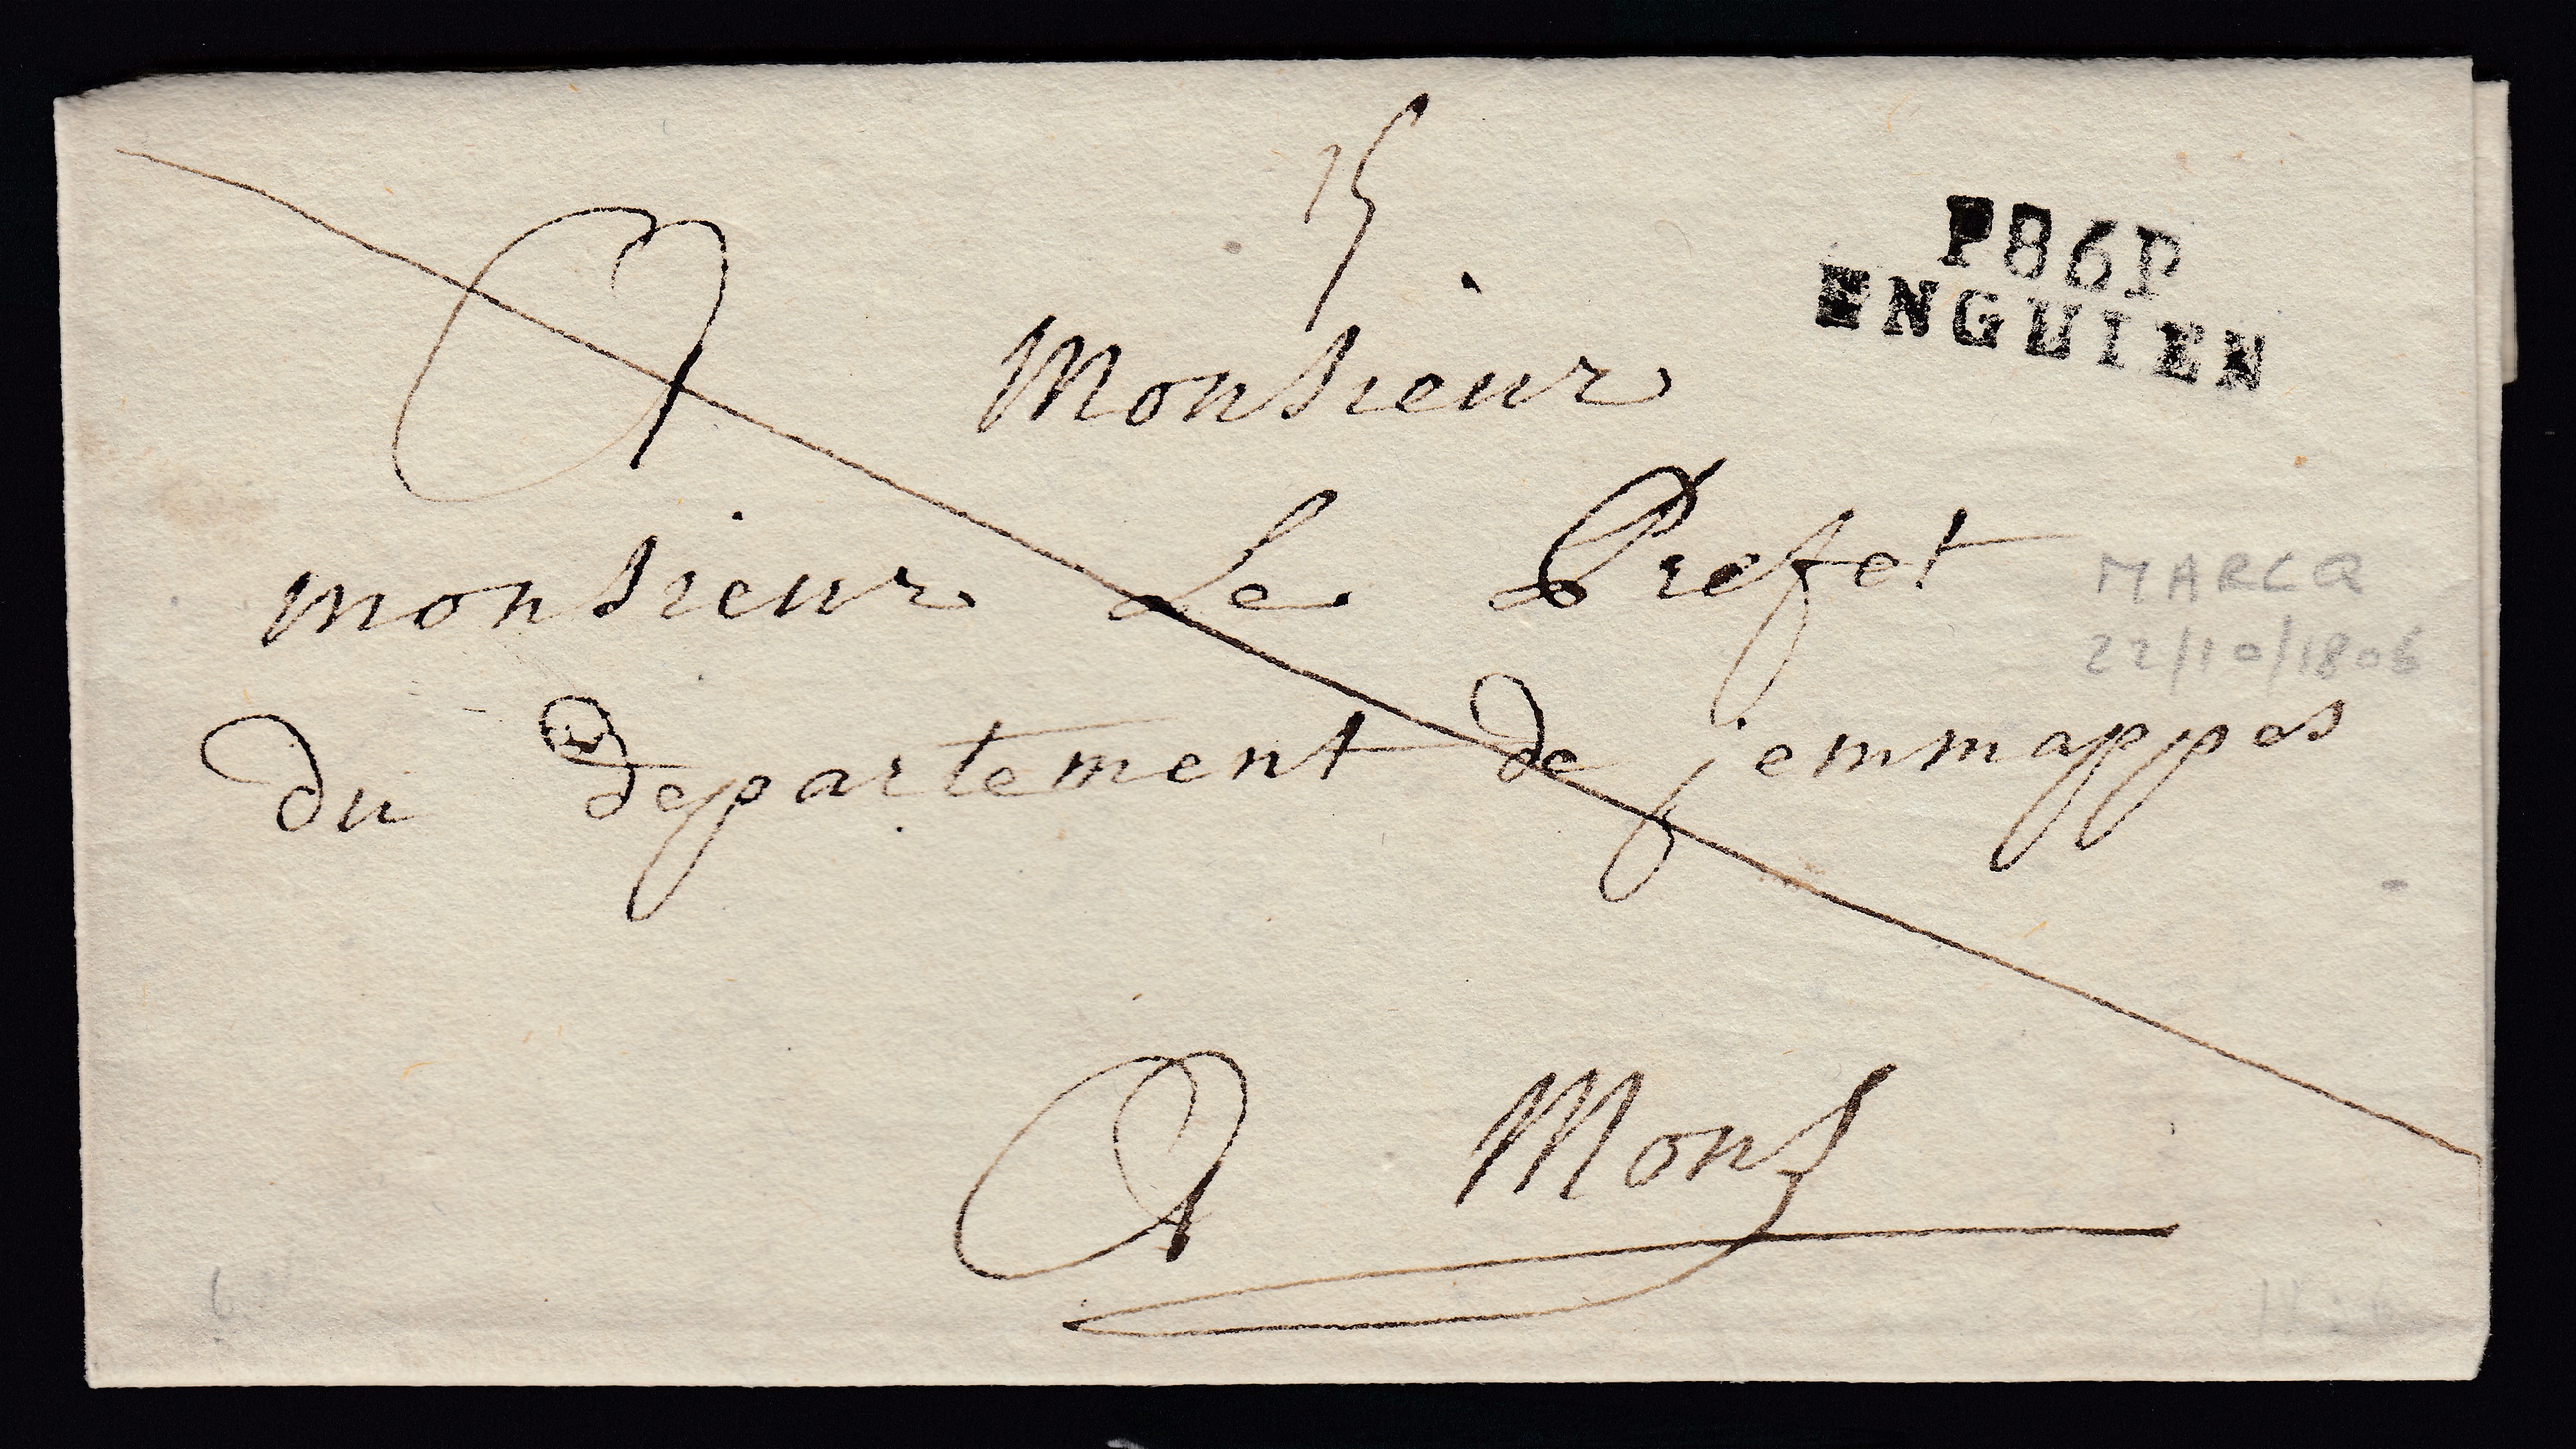 P86P
ENGHIEN
A Monsieur
monsieur Le Prefet
MARCQ
22/10/1806
du departement de jemmappes
A Mons